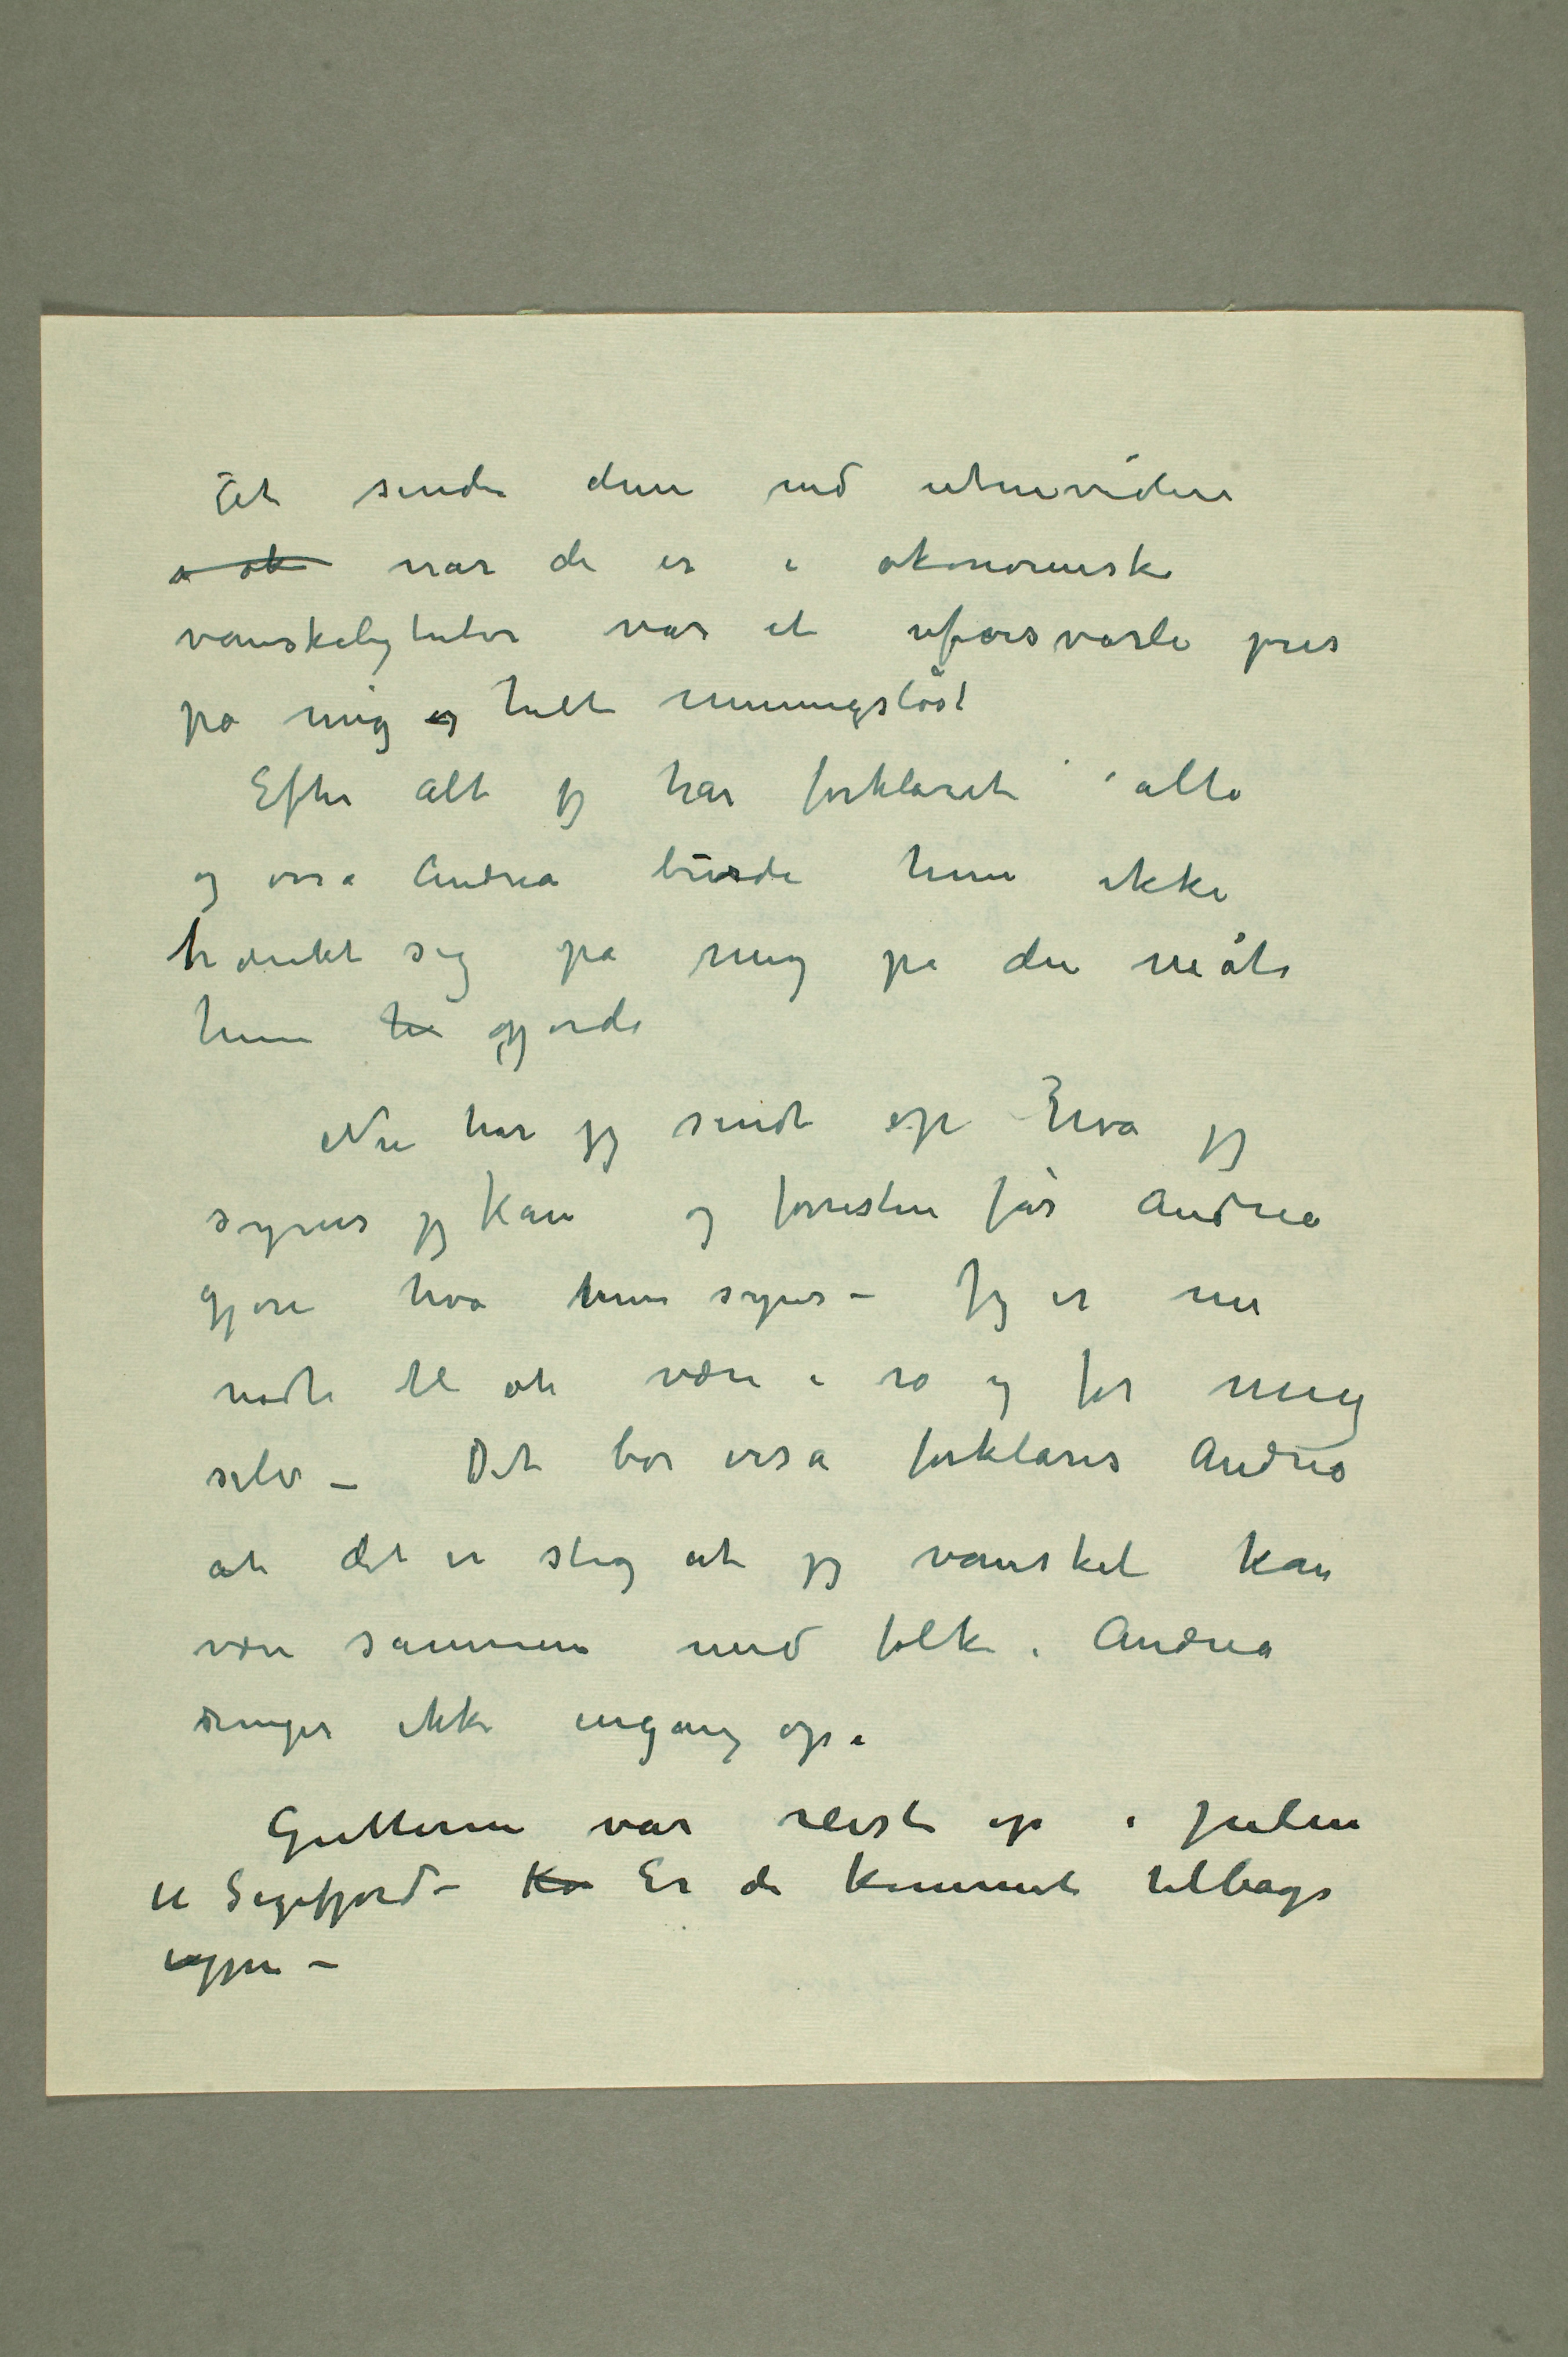 At sende dem ned utenvidere
a ok når de er i økonomiske
vanskeligheter var et uforsvarli pres
på mig og helt meningsløst
Efter alt jeg har forklaret i alle
og osså Andrea burde hun ikke
trænkt sig på mig på den måte
hun ha gjorde
Nu har jeg sendt op hva jeg
synes jeg kan og forresten får Andrea
gjøre hva hun synes – Jeg er nu
nødt til at være i ro og for mig
selv – Det bør osså forklares Andrea
at det er slig at jeg vanskeli kan
være sammen med folk. Andrea
ringer ikke engang op.
Guttene var reist op i julen
til Sigefjord – Ko Er de kommet tilbage
igjen –